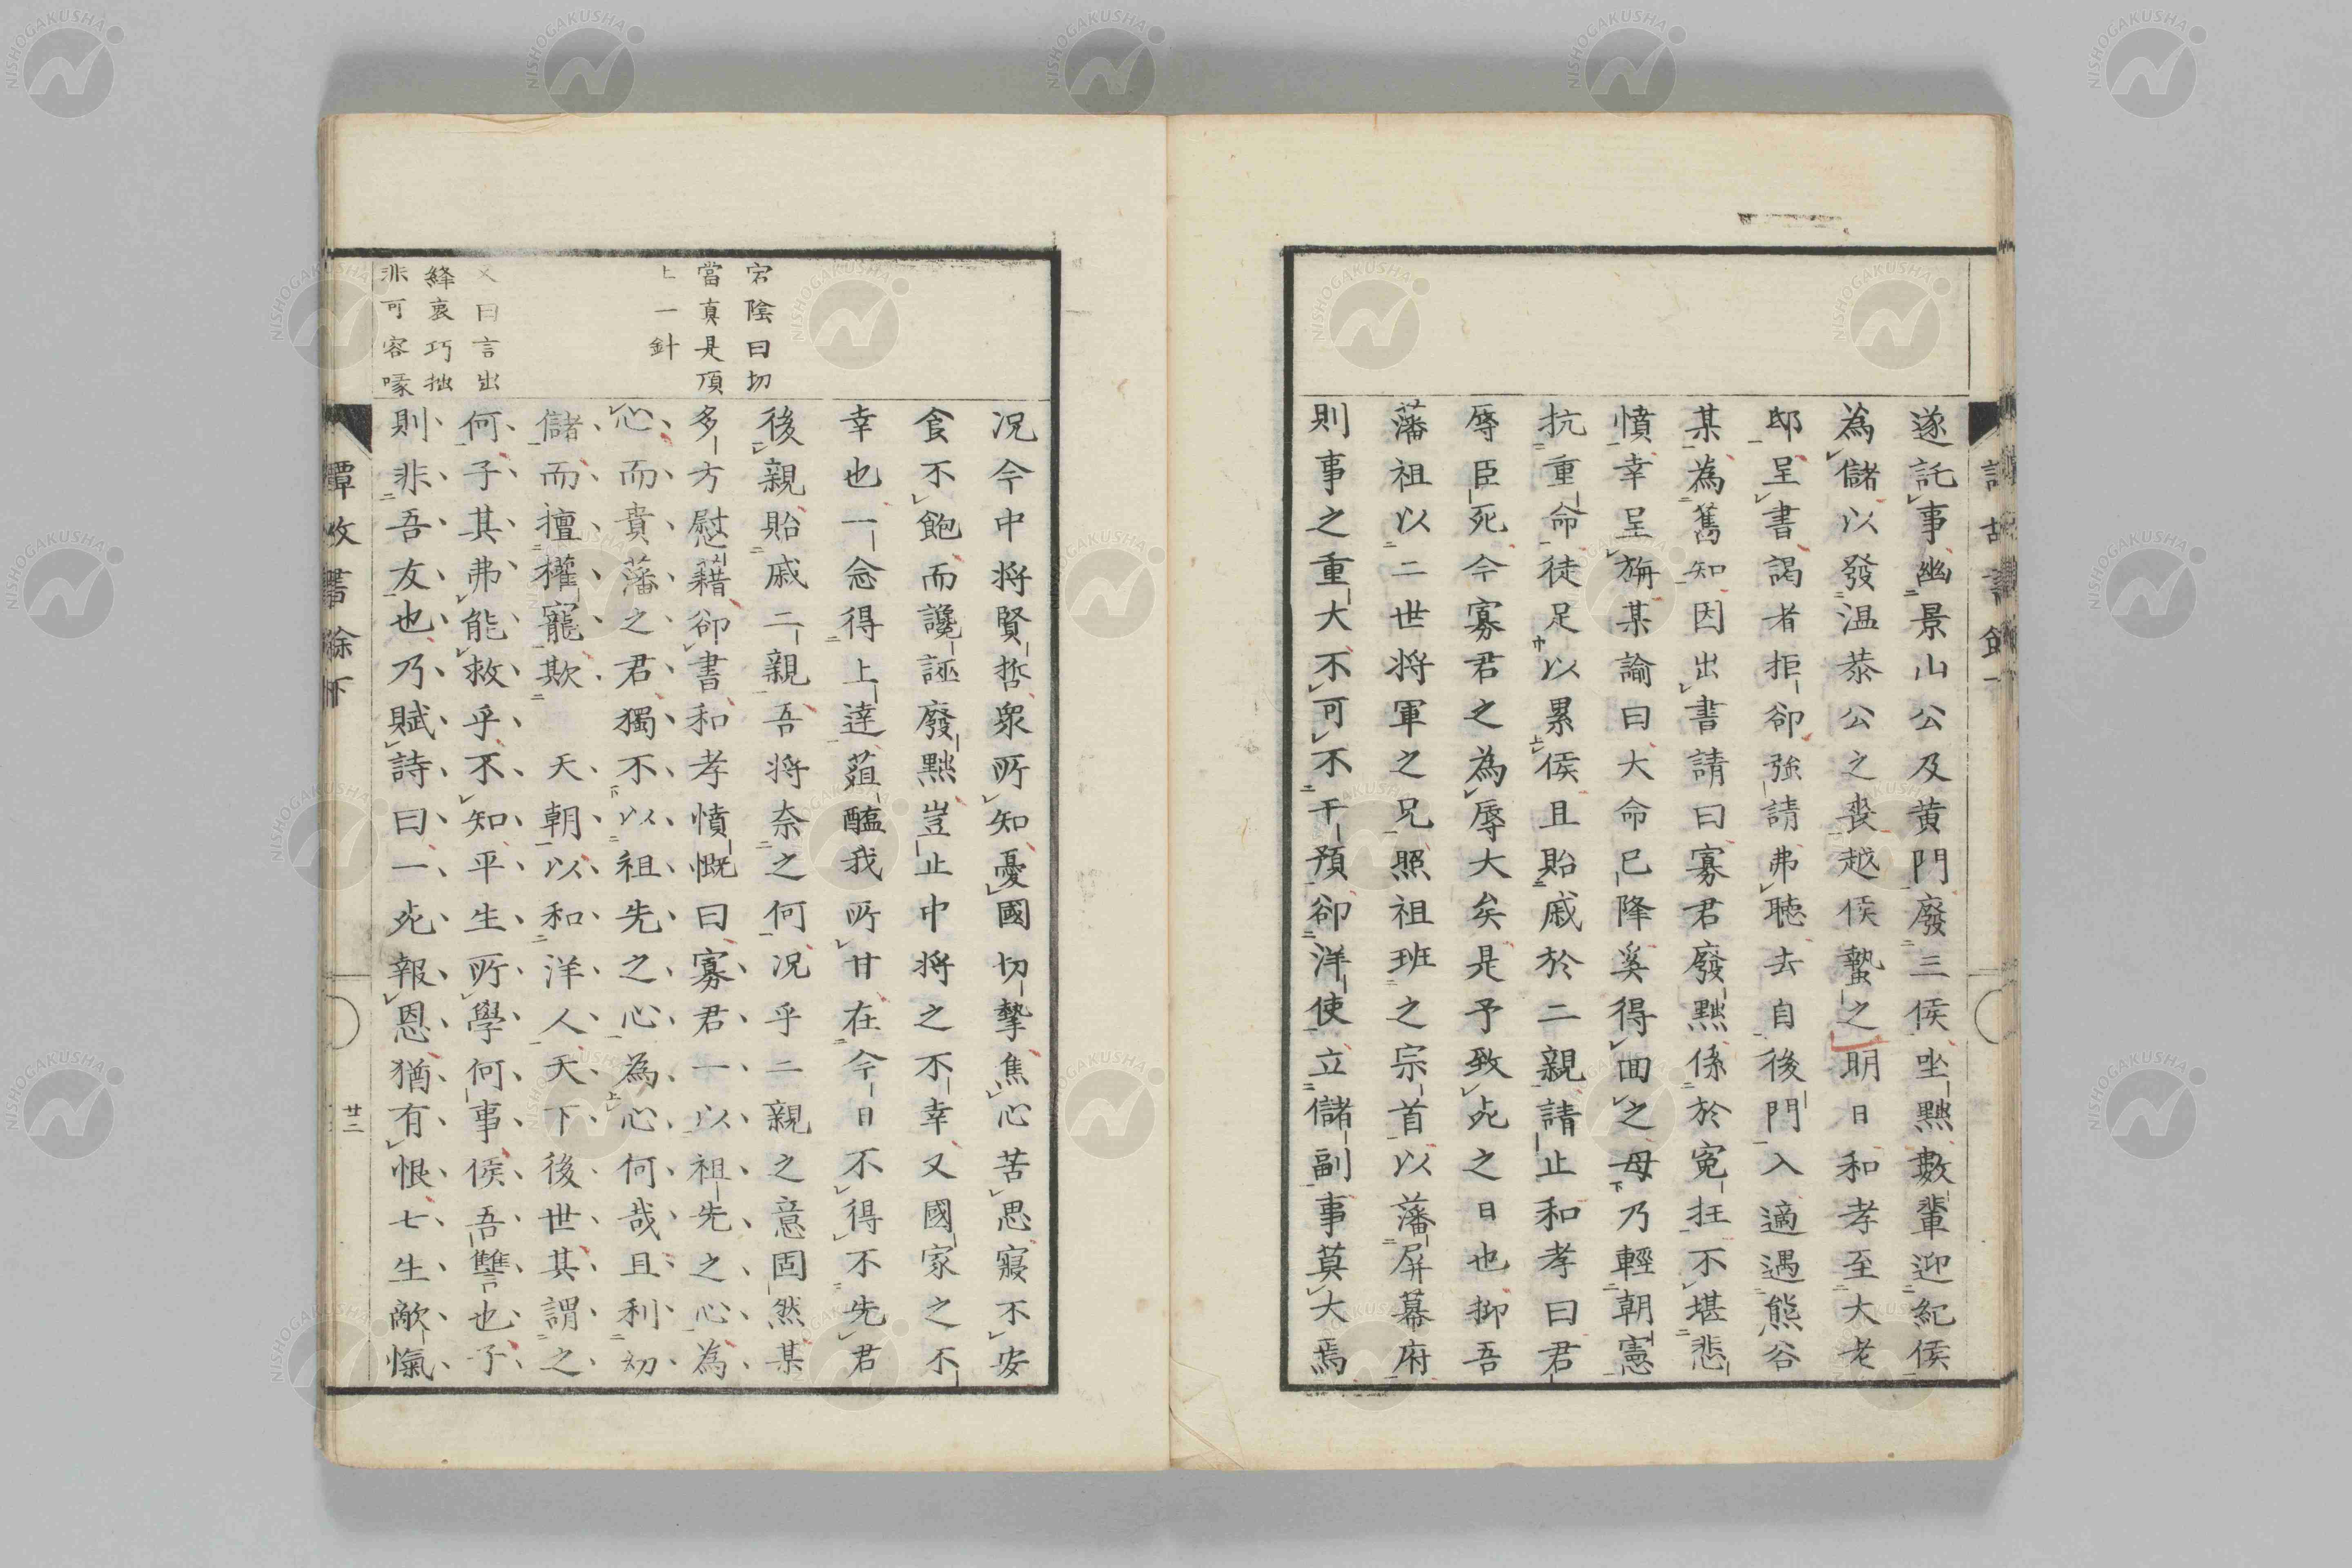 遂託事幽景山公及黄門廢三侯坐黜數輩迎紀侯
為儲以發温恭公之喪越侯蟄之明日和孝至大老
邸呈書謁者拒卻強請弗聴去自後門入適遇熊谷
某為舊知因出書請曰寡君廢黜係於寃抂不堪悲
憤幸呈旃某諭曰大命已降奚得回之母乃輕朝憲
抗重命徒足以累侯且貽戚於二親請止和孝曰君
辱臣死今寡君之為辱大矣是予致死之日也抑吾
藩祖以二世将軍之兄照祖班之宗首以藩屏幕府
則事之重大不可不干預卻洋使立儲副事莫大焉
况今中将賢哲衆所知憂國切摯焦心苦思寢不安
食不飽而讒誣廢黜豈止中将之不幸又國家之不
幸也一念得上達葅醢我所甘在今日不得不先君
後親貽戚二親吾将奈之何况乎二親之意固然某
多方慰藉卻書和孝憤慨曰寡君一以祖先之心為
心而賁藩之君獨不以祖先之心為心何哉且利幼
儲而擅權寵欺 天朝以和洋人天下後世其謂之
何子其弗能救乎不知平生所學何事侯吾讐也子
則非吾友也乃賦詩曰一死報恩猶有恨七生敵愾
宕陰曰切
當真是頂
上一針
又曰言出
絳衷巧拙
非可容喙
廿二
NISHOGAKUSHA